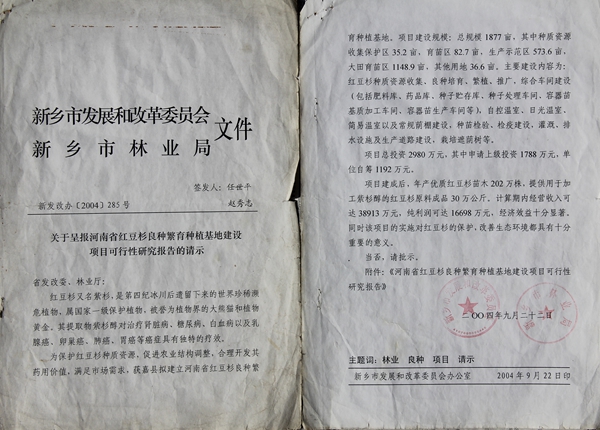 新乡市发展和改革委员会
新乡市林业局
文件
签发人：任世平
新发改办〔2004〕285号
赵秀志
关于呈报河南省红豆杉良种繁育种植基地建设
项目可行性研究报告的请示
省发改委、林业厅：
红豆杉又名紫杉，是第四纪冰川后遗留下来的世界珍稀濒
危植物，属国家一级保护植物，被誉为植物界的大熊猫和植物
黄金。其提取物紫杉醇对治疗肾脏病、糖尿病、白血病以及乳
腺癌、卵巢癌、肺癌、胃癌等癌症具有独特的疗效。
为保护红豆杉种质资源，促进农业结构调整，合理开发其
药用价值，满足市场需求，获嘉县拟建立河南省红豆杉良种繁
育种植基地。项目建设规模：总规模1877亩，其中种质资源
收集保护区35.2亩，育苗区82.7亩，生产示范区573.6亩，
大田育苗区1148.9亩，其他用地36.6亩。主要建设内容为：
红豆杉种质资源收集、良种培育、繁殖、推广、综合车间建设
（包括肥料库、药品库、种子贮存库、种子处理车间、容器苗
基质加工车间、容器苗生产车间等），自控温室、日光温室、
简易温室以及常规荫棚建设，种苗检验、检疫建设，灌溉、排
水设施及生产道路建设，栽培遮荫树等。
项目总投资2980万元，其中申请上级投资1788万元，单
位自筹1192万元。
项目建成后，年产优质红豆杉苗木202万株，提供用于加
工紫杉醇的红豆杉原料成品30万公斤。计算期内经营收入可
达38913万元，纯利润可达16698万元，经济效益十分显著。
同时该项目的实施对红豆杉的保护，改善生态环境都具有十分
重要的意义。
当否，请批示。
附件：《河南省红豆杉良种繁育种植基地建设项目可行性
研究报告》
二〇〇四年九月二十二日
主题词：林业 良种 项目 请示
新乡市发展和改革委员会办公室 2004年9月22日印